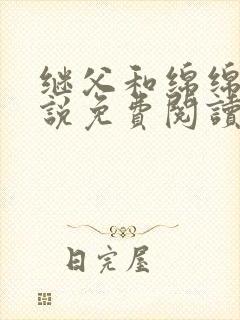 继父和绵绵
説免費閱讀
日完屋